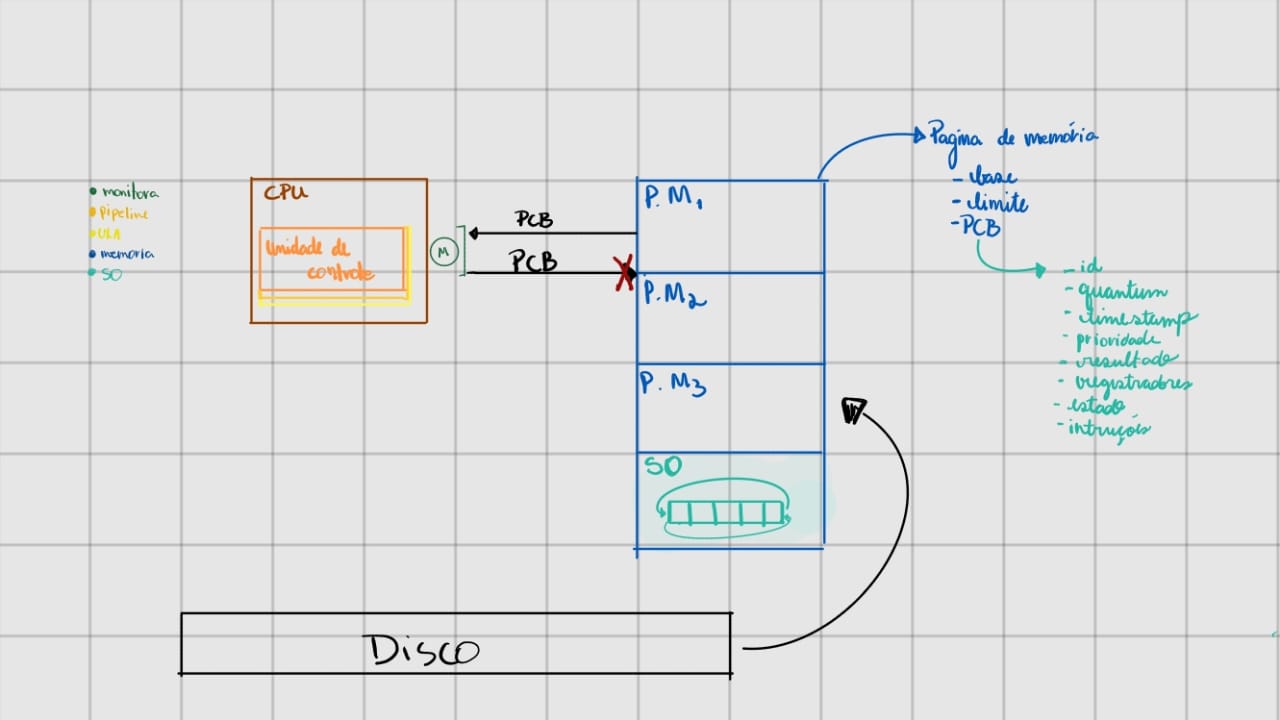 • monitora
• Pipeline
• ULA
• memória
• SO
CPU
Unidade de
controle
M
PCB
PCB
P.M1
P.M2
P.M3
SO
Pagina de memória
- base
- limite
- PCB
- id
- quantum
- timestamp
- prioridade
- resultado
- registradores
- estado
- intruções
Disco